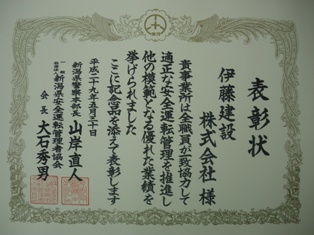 表彰状
伊藤建設
株式会社 様
貴事業所は全職員が一致協力して
適正な安全運転管理を推進し
他の模範となる優れた業績を
挙げられました
ここに記念品を添えて表彰します
平成二十九年五月三十日
新潟県警察本部長 山岸直人
一般社団法人 新潟県安全運転管理者協会
会長 大石秀男